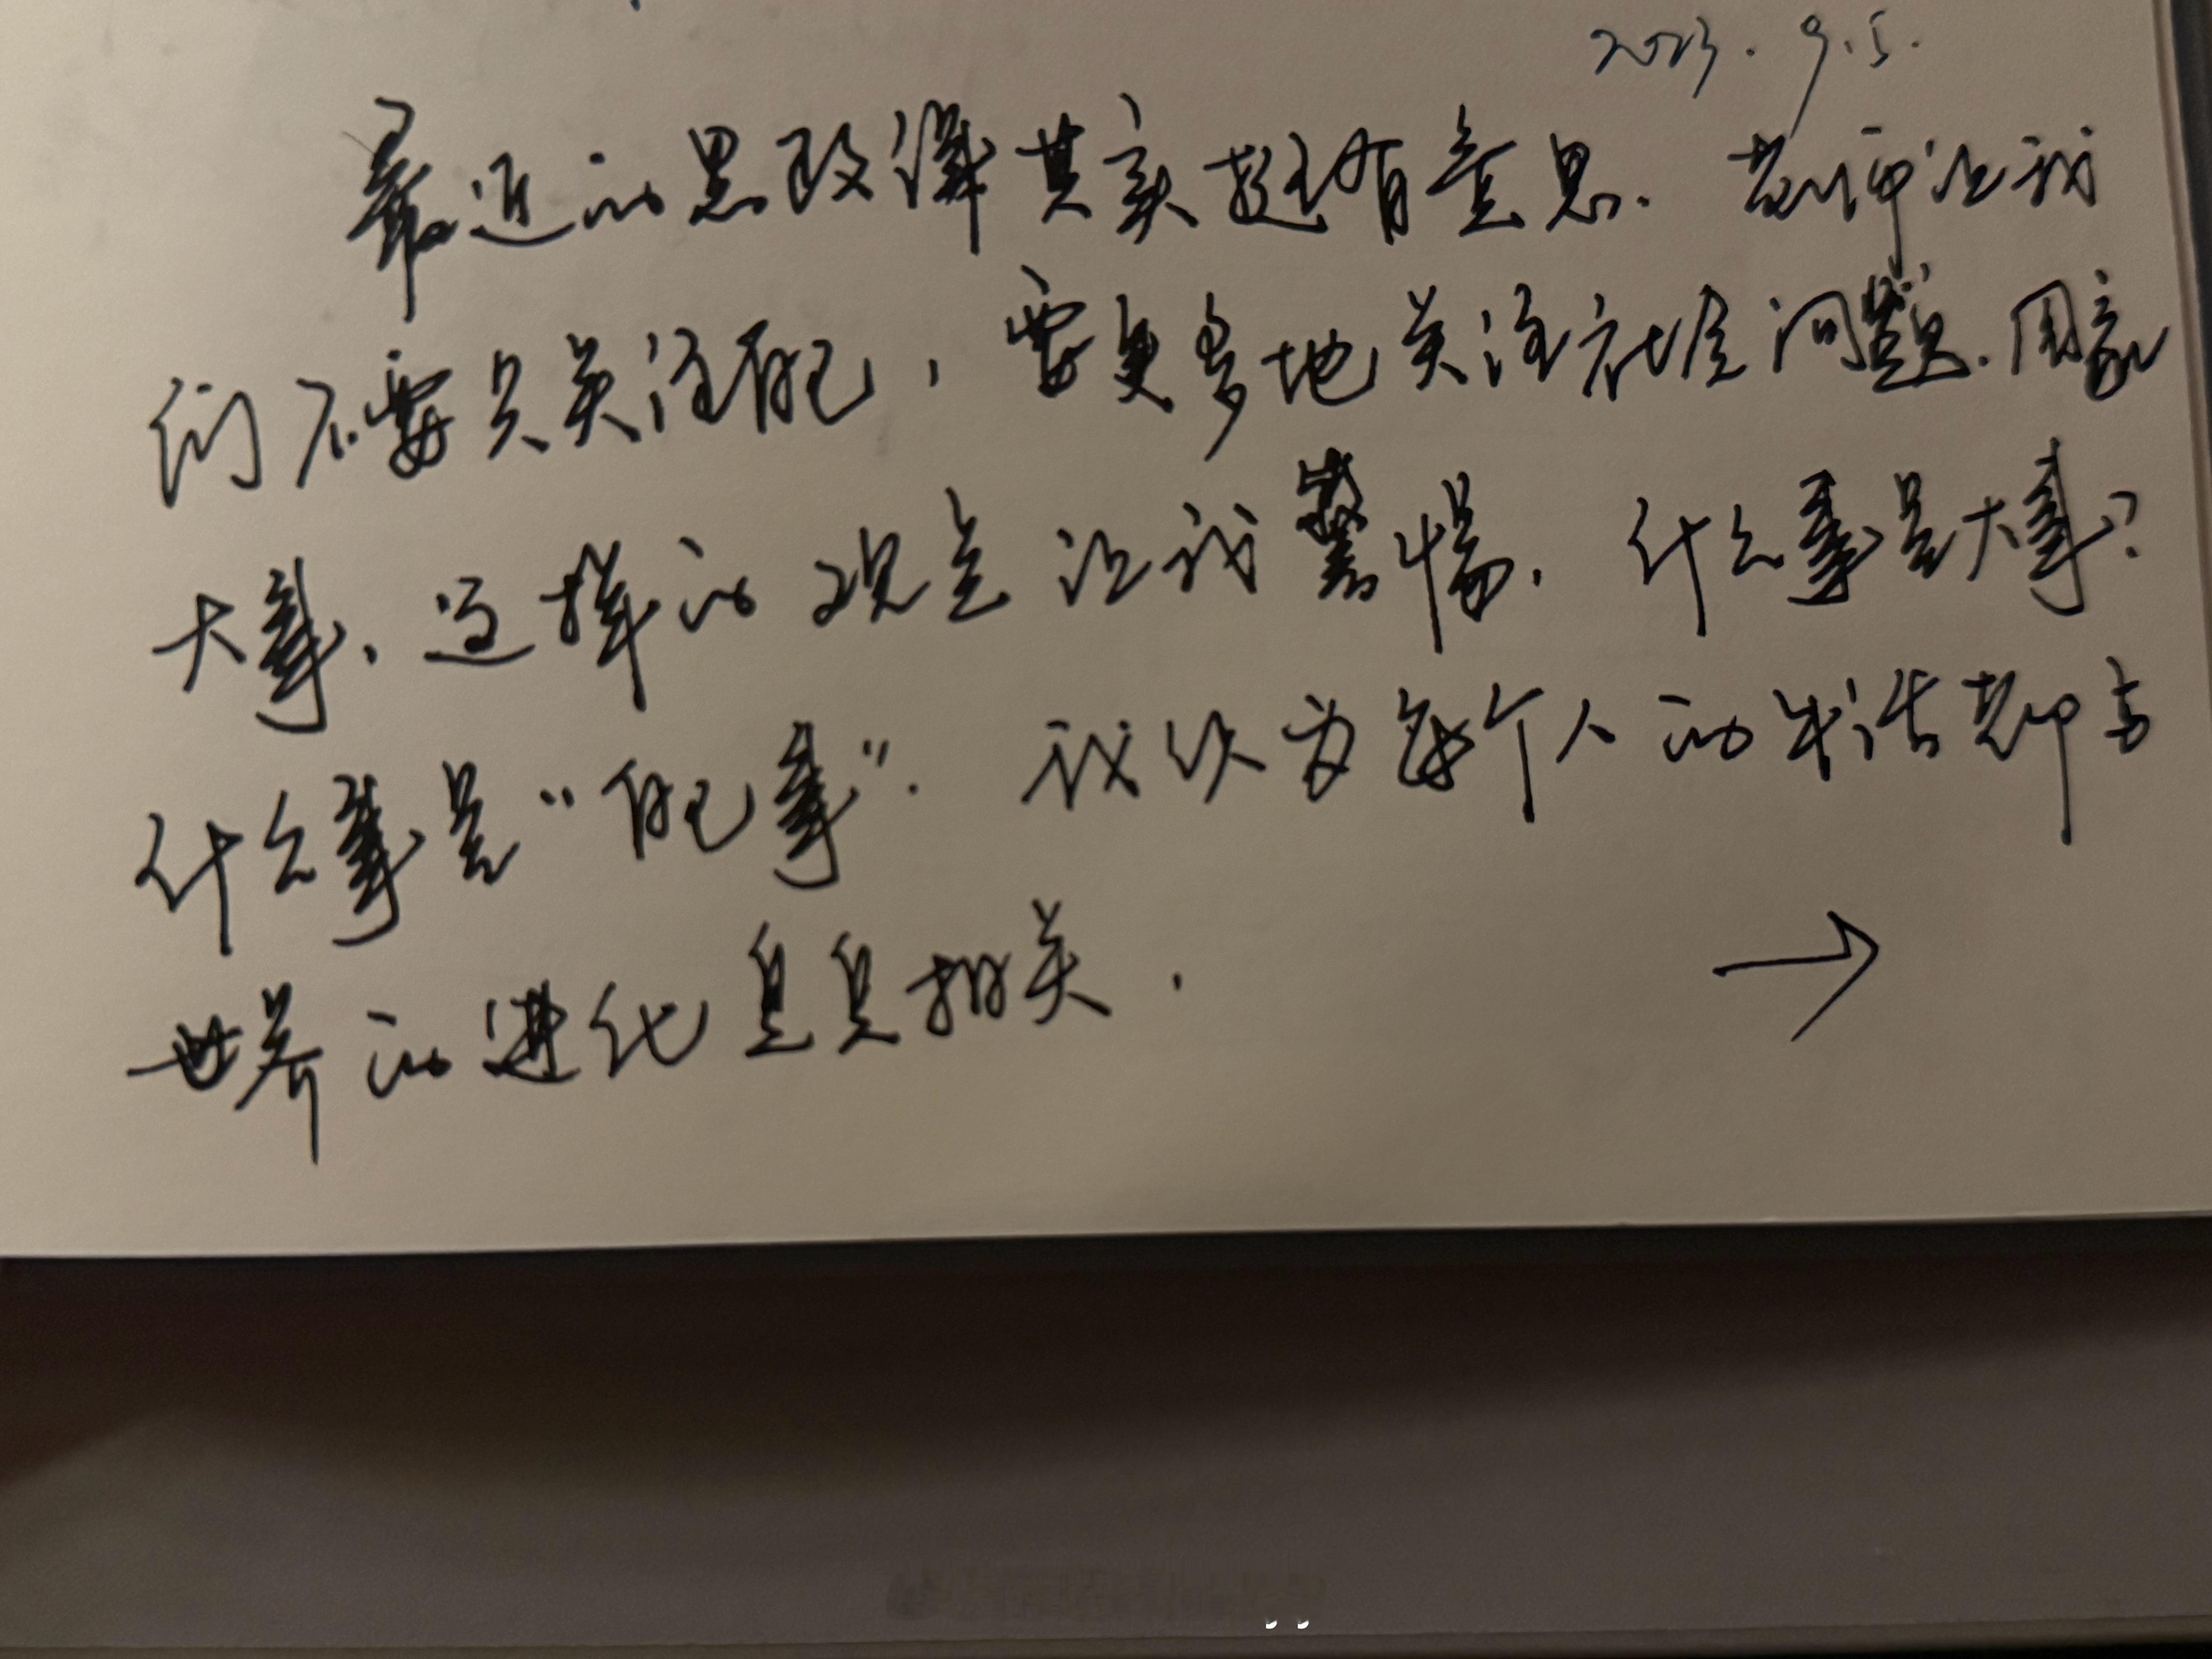 2023.9.5.
最近的思政课其实挺有意思.老师让我
们不要只关注自己,要更多地关注社会问题.国家
大事.这样的观点让我警惕.什么事是大事?
什么事是"自己事".我认为每个人的生活都与
世界的进化息息相关.
→